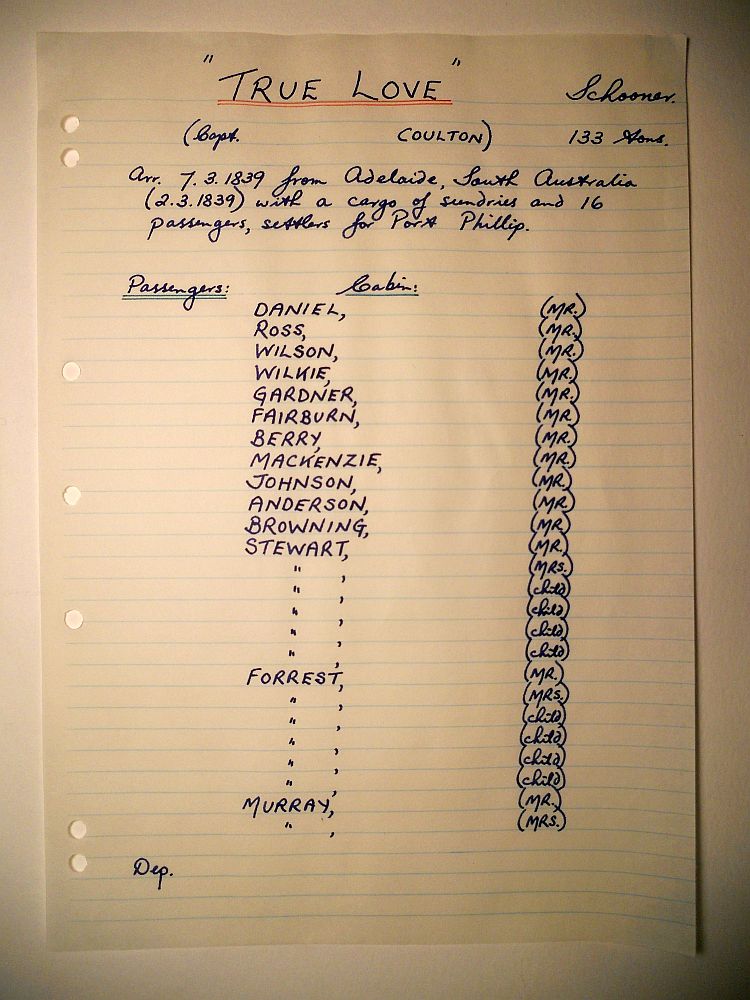 "TRUE LOVE" Schooner.
(Capt. COULTON) 133 tons.
Arr. 7.3.1839 from Adelaide, South Australia
(2.3.1839) with a cargo of sundries and 16
passengers, settlers for Port Phillip.
Passengers: Cabin:
DANIEL, (MR.)
ROSS, (MR.)
WILSON, (MR.)
WILKIE, (MR.)
GARDNER, (MR.)
FAIRBURN, (MR.)
BERRY, (MR.)
MACKENZIE, (MR.)
JOHNSON, (MR.)
ANDERSON, (MR.)
BROWNING, (MR.)
STEWART, (MR.)
" , (MRS.)
" , (child)
" , (child)
" , (child)
" , (child)
FORREST, (MR.)
" , (MRS.)
" , (child)
" , (child)
" , (child)
" , (child)
MURRAY, (MR.)
" , (MRS.)
Dep.